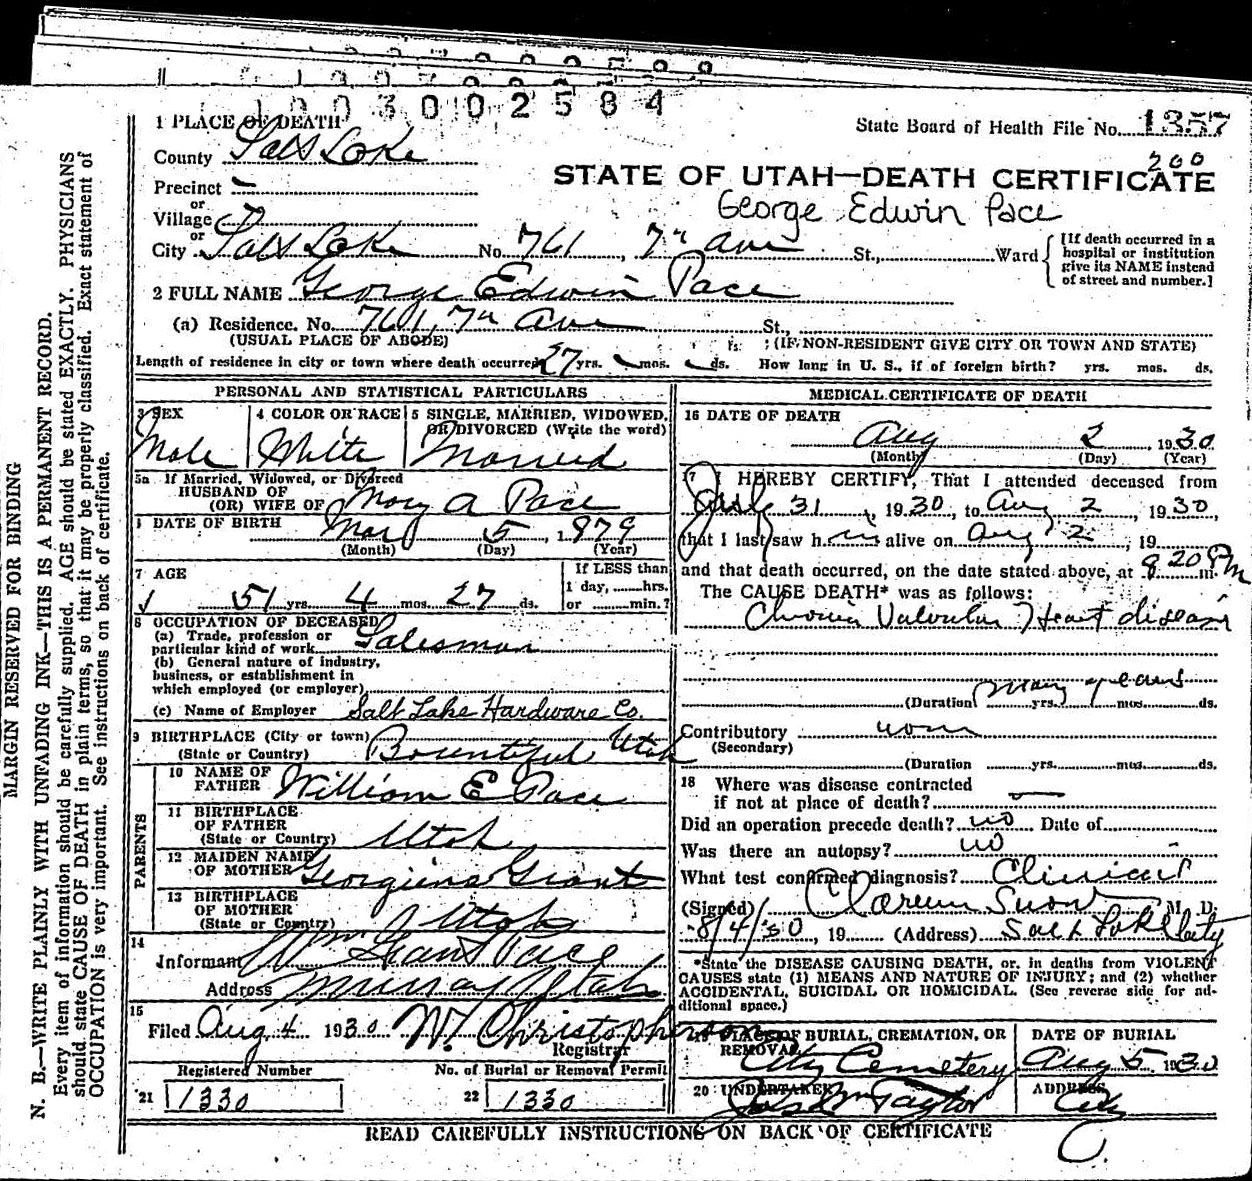 1003002584
1 PLACE OF DEATH
State Board of Health File No. 1357
County Salt Lake
200
Precinct —
STATE OF UTAH—DEATH CERTIFICATE
or
Village
George Edwin Pace
or
City Salt Lake No. 761, 7th Ave St., Ward
[If death occurred in a hospital or institution give its NAME instead of street and number.]
2 FULL NAME George Edwin Pace
(a) Residence. No. 761, 7th Ave St.,
(USUAL PLACE OF ABODE) (IF NON-RESIDENT GIVE CITY OR TOWN AND STATE)
Length of residence in city or town where death occurred 27 yrs. — mos. — ds. How long in U. S., if of foreign birth? yrs. mos. ds.
PERSONAL AND STATISTICAL PARTICULARS
3 SEX
Male
4 COLOR OR RACE
White
5 SINGLE, MARRIED, WIDOWED, OR DIVORCED (Write the word)
Married
5a If Married, Widowed, or Divorced
HUSBAND OF
(OR) WIFE OF Mary A Pace
6 DATE OF BIRTH Mar 5, 1879
(Month) (Day) (Year)
7 AGE
51 yrs. 4 mos. 27 ds.
If LESS than
1 day, hrs.
or min.?
8 OCCUPATION OF DECEASED
(a) Trade, profession or
particular kind of work Salesman
(b) General nature of industry,
business, or establishment in
which employed (or employer)
(c) Name of Employer Salt Lake Hardware Co.
9 BIRTHPLACE (City or town)
(State or Country) Bountiful Utah
PARENTS
10 NAME OF
FATHER William E Pace
11 BIRTHPLACE
OF FATHER
(State or Country) Utah
12 MAIDEN NAME
OF MOTHER Georgiena Grant
13 BIRTHPLACE
OF MOTHER
(State or Country) Utah
14
Informant Wm Grant Pace
Address Murray Utah
15
Filed Aug 4 1930 W. Christopherson
Registrar
Registered Number No. of Burial or Removal Permit
21 1330 22 1330
MEDICAL CERTIFICATE OF DEATH
16 DATE OF DEATH
Aug 2 1930
(Month) (Day) (Year)
17 I HEREBY CERTIFY, That I attended deceased from
July 31, 1930, to Aug 2, 1930,
that I last saw him alive on Aug 2, 19
and that death occurred, on the date stated above, at 820 Pm.
The CAUSE DEATH* was as follows:
Chronic Valvular Heart disease
(Duration many years yrs. mos. ds.
Contributory none
(Secondary)
(Duration yrs. mos. ds.
18 Where was disease contracted
if not at place of death? —
Did an operation precede death? no Date of
Was there an autopsy? no
What test confirmed diagnosis? Clinical
(Signed) Clarence Snow M. D.
8/4/30, 19 (Address) Salt Lake City
*State the DISEASE CAUSING DEATH, or, in deaths from VIOLENT
CAUSES state (1) MEANS AND NATURE OF INJURY; and (2) whether
ACCIDENTAL, SUICIDAL OR HOMICIDAL. (See reverse side for ad-
ditional space.)
19 PLACE OF BURIAL, CREMATION, OR
REMOVAL
City Cemetery
DATE OF BURIAL
Aug 5 1930
20 UNDERTAKER
Jos Wm Taylor
ADDRESS
City
READ CAREFULLY INSTRUCTIONS ON BACK OF CERTIFICATE
MARGIN RESERVED FOR BINDING
N. B.—WRITE PLAINLY WITH UNFADING INK—THIS IS A PERMANENT RECORD.
Every item of information should be carefully supplied. AGE should be stated EXACTLY. PHYSICIANS
should state CAUSE OF DEATH in plain terms, so that it may be properly classified. Exact statement of
OCCUPATION is very important. See instructions on back of certificate.